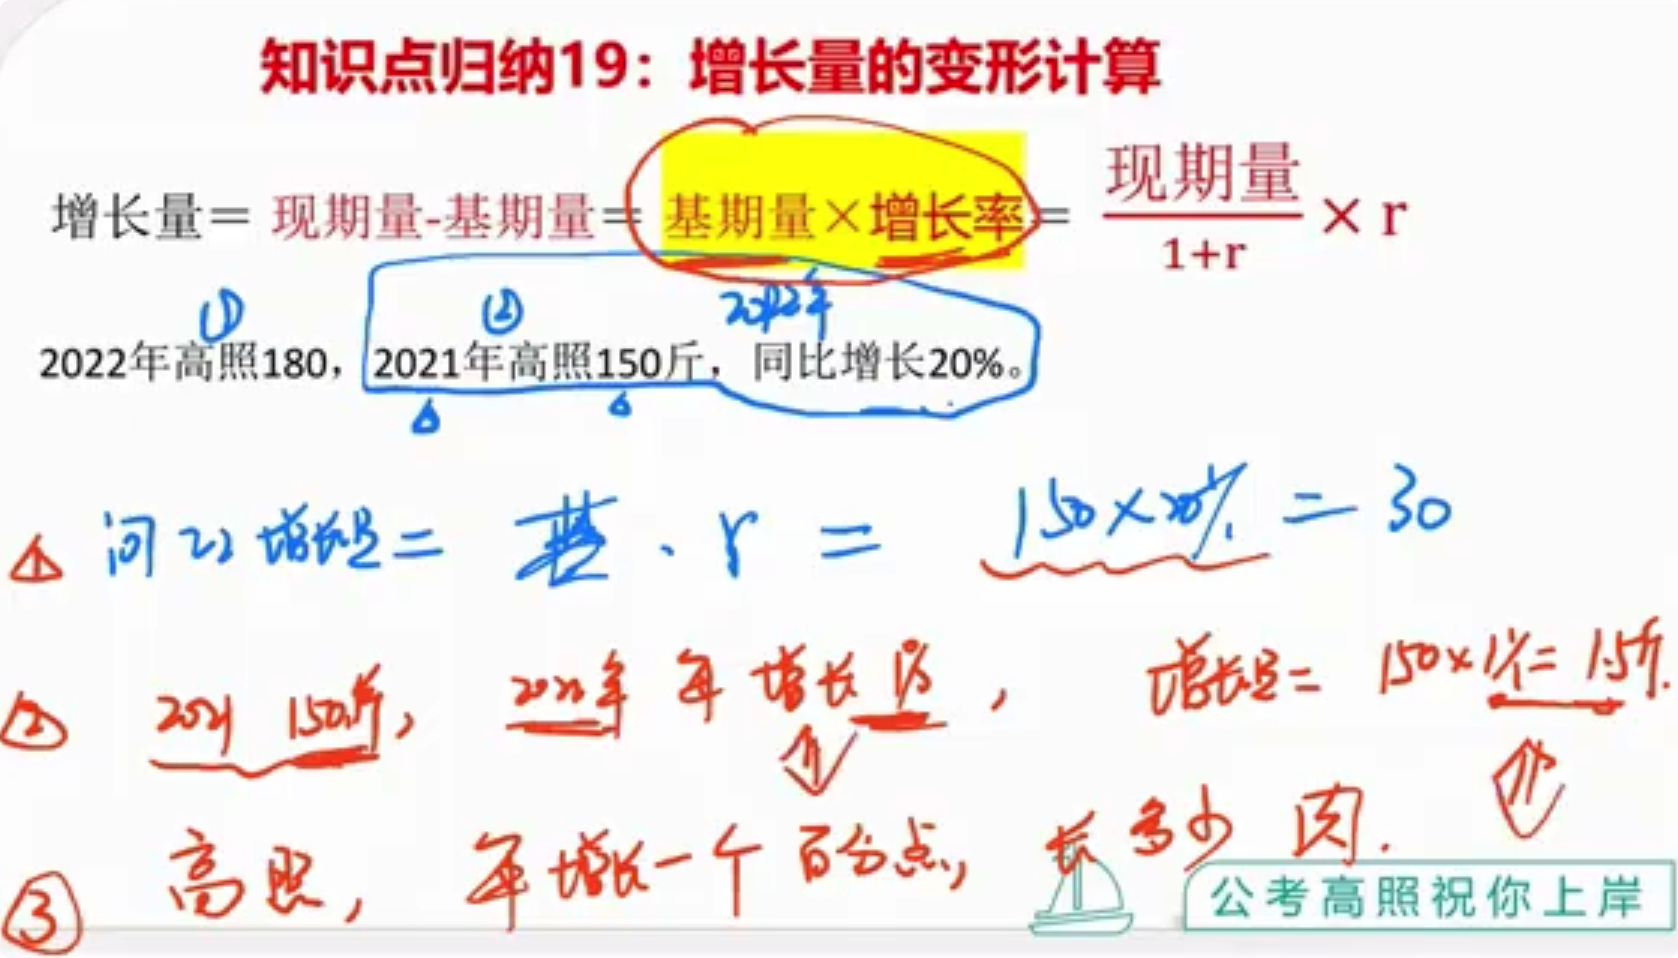 知识点归纳19：增长量的变形计算
增长量＝ 现期量-基期量＝ 基期量×增长率＝ 现期量/1+r × r
① ② 2022年
2022年高照180，2021年高照150斤，同比增长20%。
① 问22增长量＝ 基·r ＝ 150×20%＝30
② 2021 150斤，2022年 年增长1%， 增长量＝150×1%＝1.5斤.
③ 高照， 年增长一个百分点，长多少肉.
公考高照祝你上岸